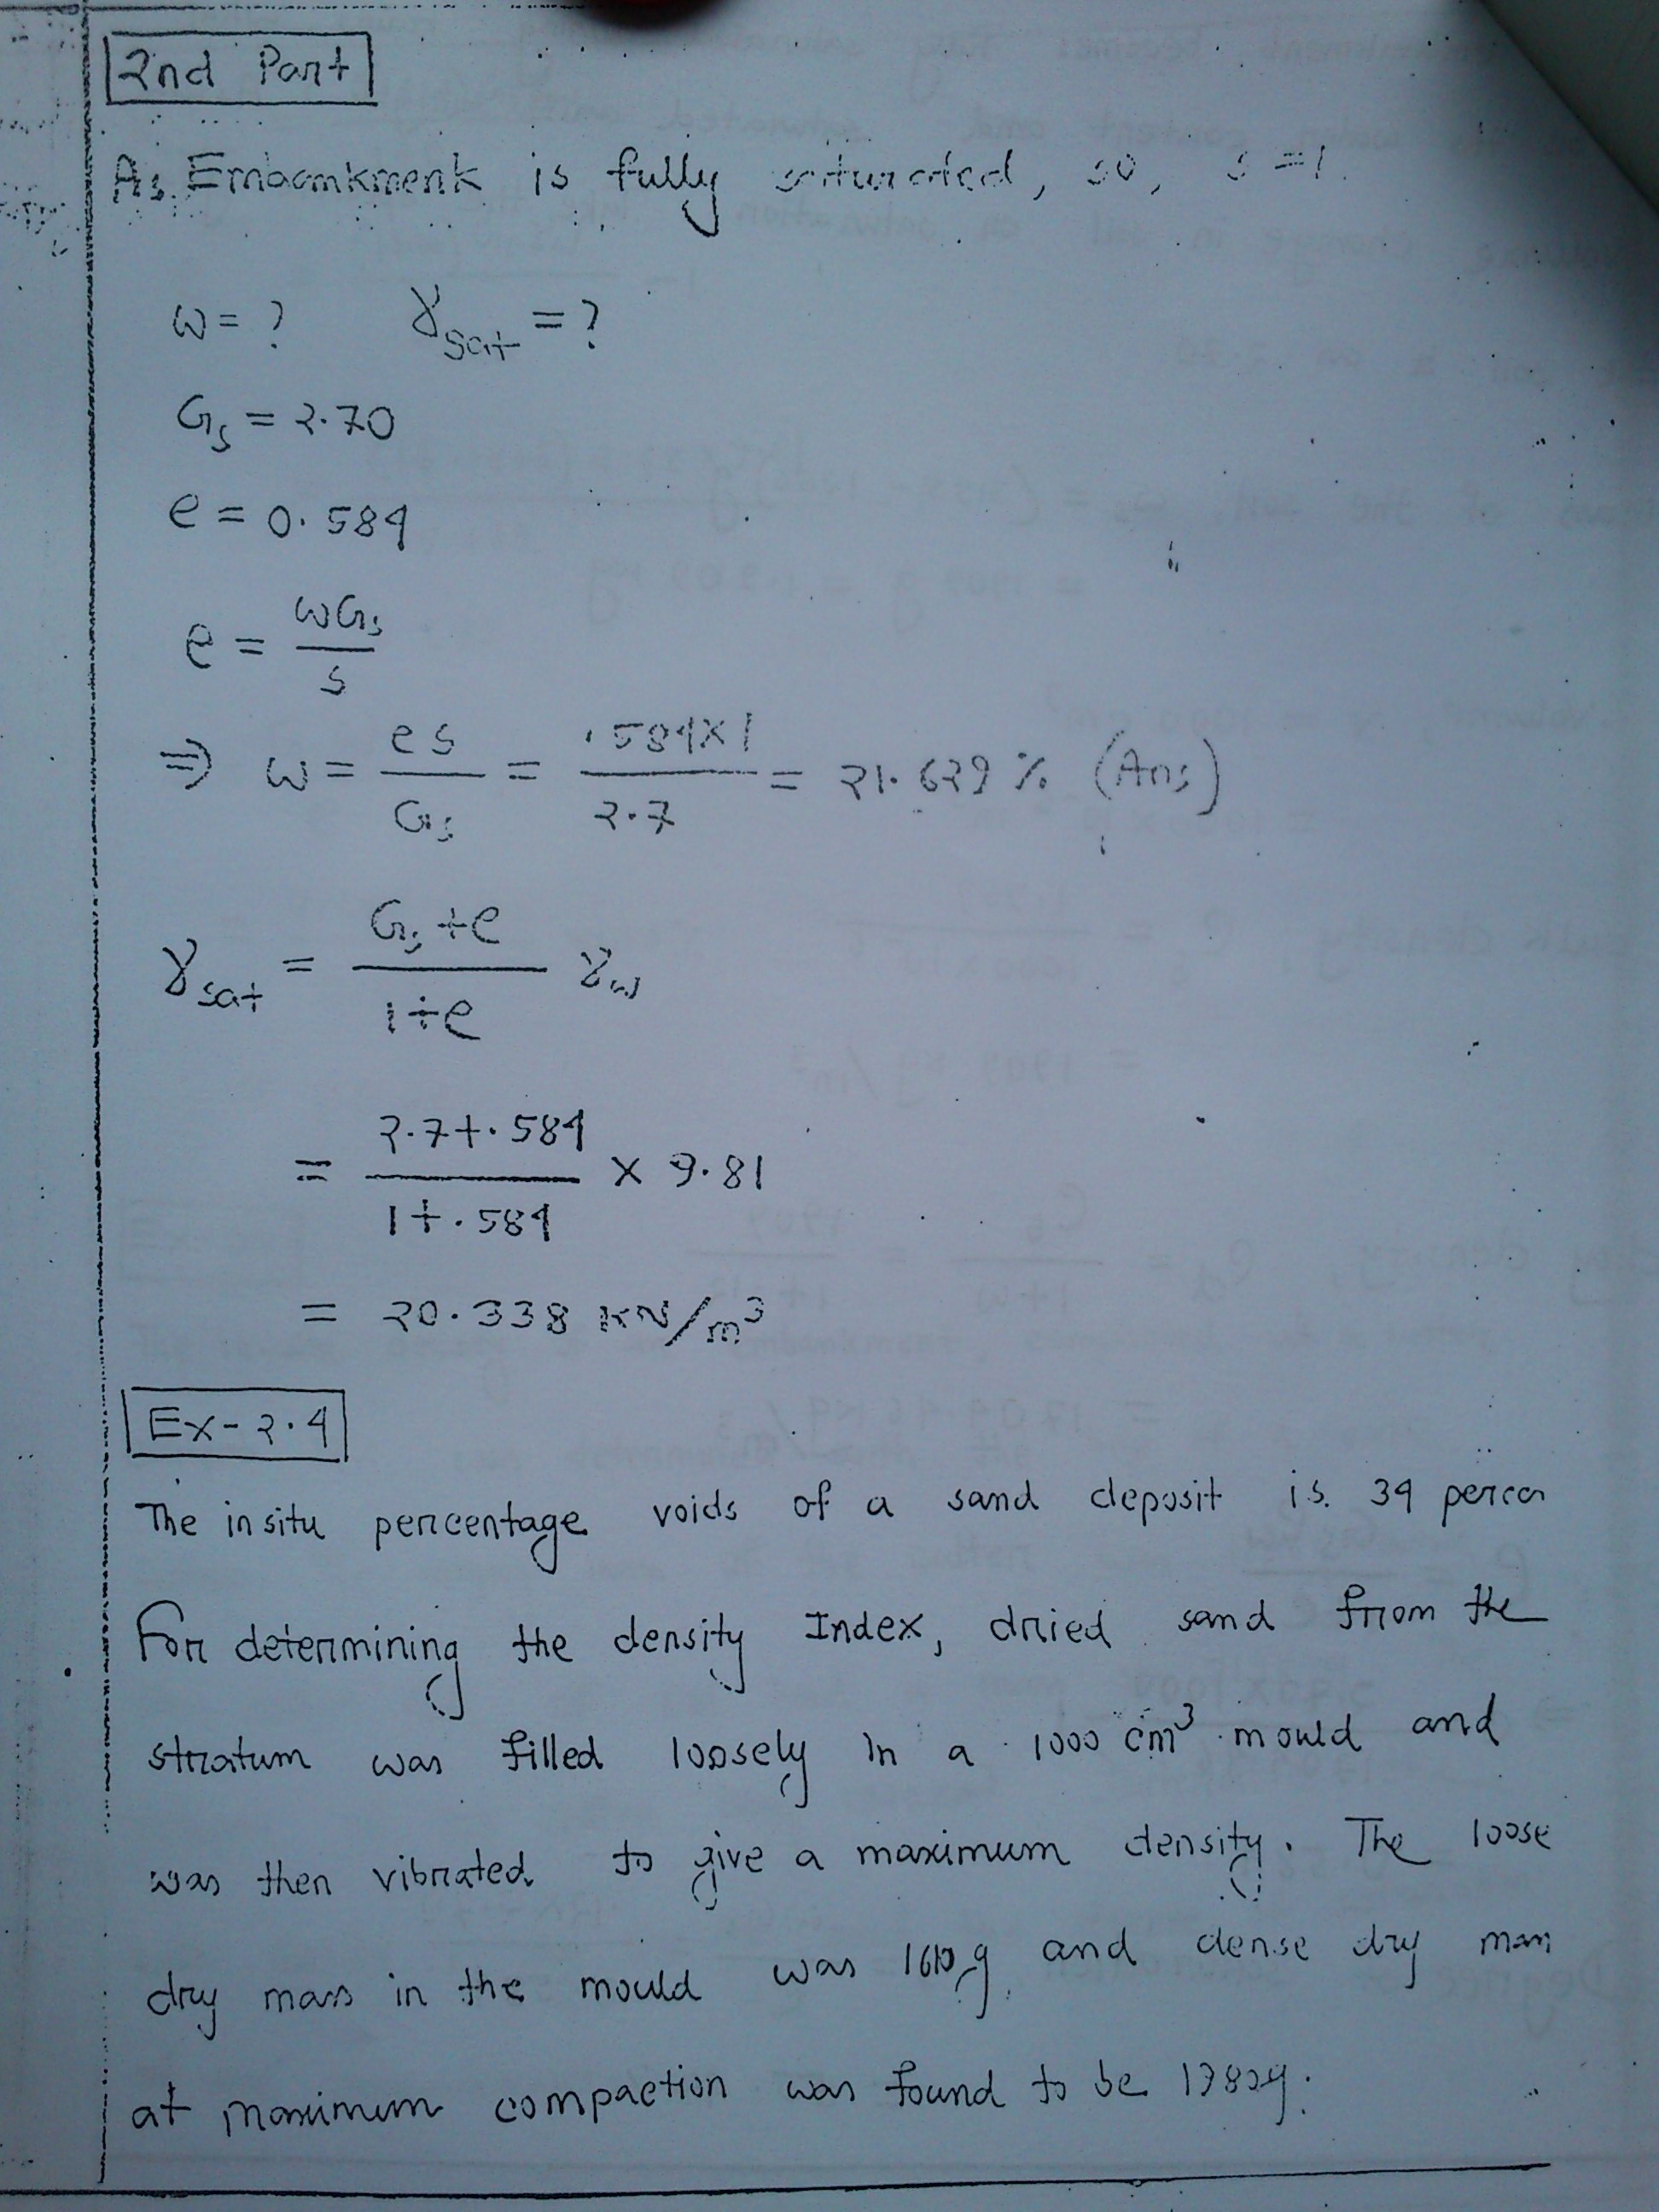 2nd Part
As Embankment is fully saturated, so, s = 1
ω = ? γsat = ?
Gs = 2.70
e = 0.584
e = ωGs / s
⇒ ω = es / Gs = .584×1 / 2.7 = 21.629 % (Ans)
γsat = Gs+e / 1+e γω
= 2.7+.584 / 1+.584 × 9.81
= 20.338 KN/m³
Ex-2.4
The insitu percentage voids of a sand deposit is 34 percen
For determining the density Index, dried sand from the
stratum was filled loosely in a 1000 cm³ mould and
was then vibrated to give a maximum density. The loose
dry mass in the mould was 1610g and dense dry mass
at maximum compaction was found to be